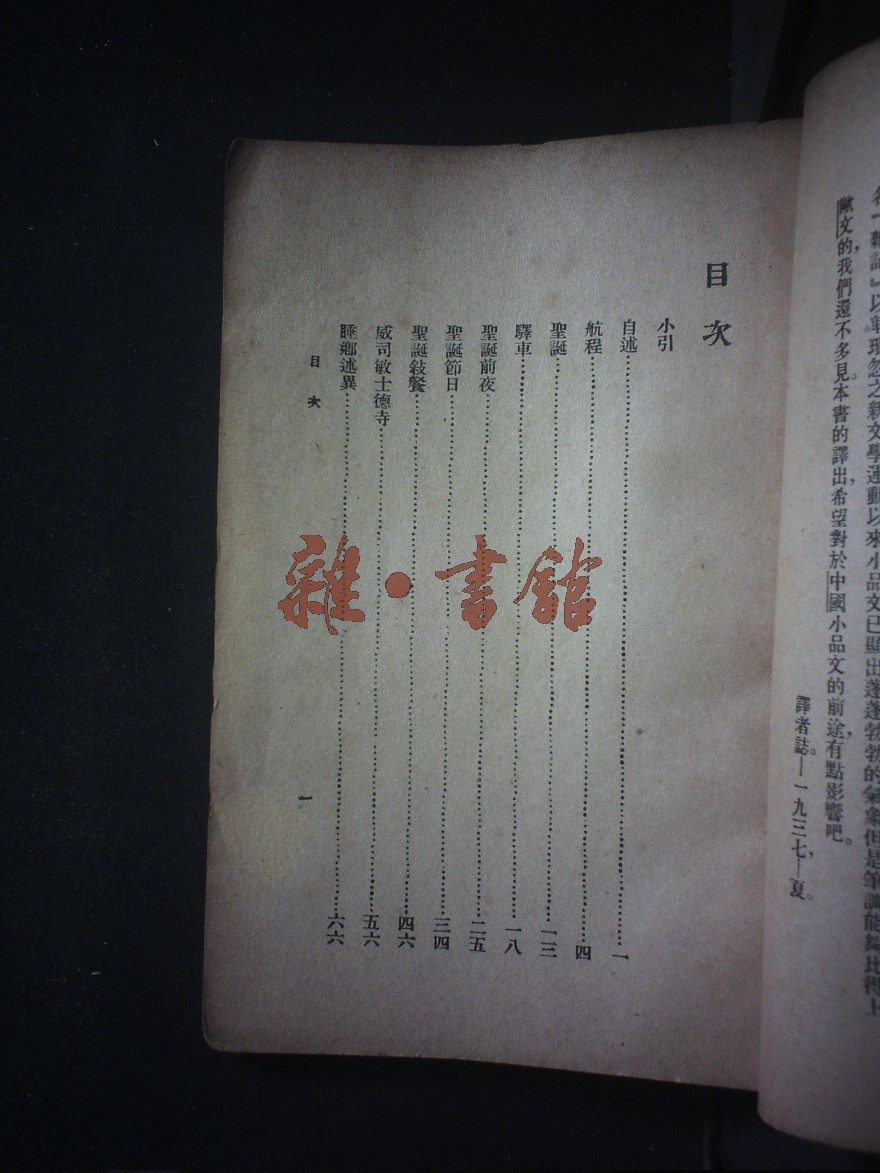 名「雜記」以單瑣忽之新文學運動以來小品文已顯出蓬蓬勃勃的氣象但是筆調能夠比得上
歐文的，我們還不多見。本書的譯出，希望對於中國小品文的前途，有點影響吧。
譯者誌。—一九三七，—夏。
目次
小引
自述⋯⋯一
航程⋯⋯四
聖誕⋯⋯一三
驛車⋯⋯一八
聖誕前夜⋯⋯二五
聖誕節日⋯⋯三四
聖誕敍餐⋯⋯四六
威司敏士德寺⋯⋯五六
睡鄉述異⋯⋯六六
目次
一
雜·書館